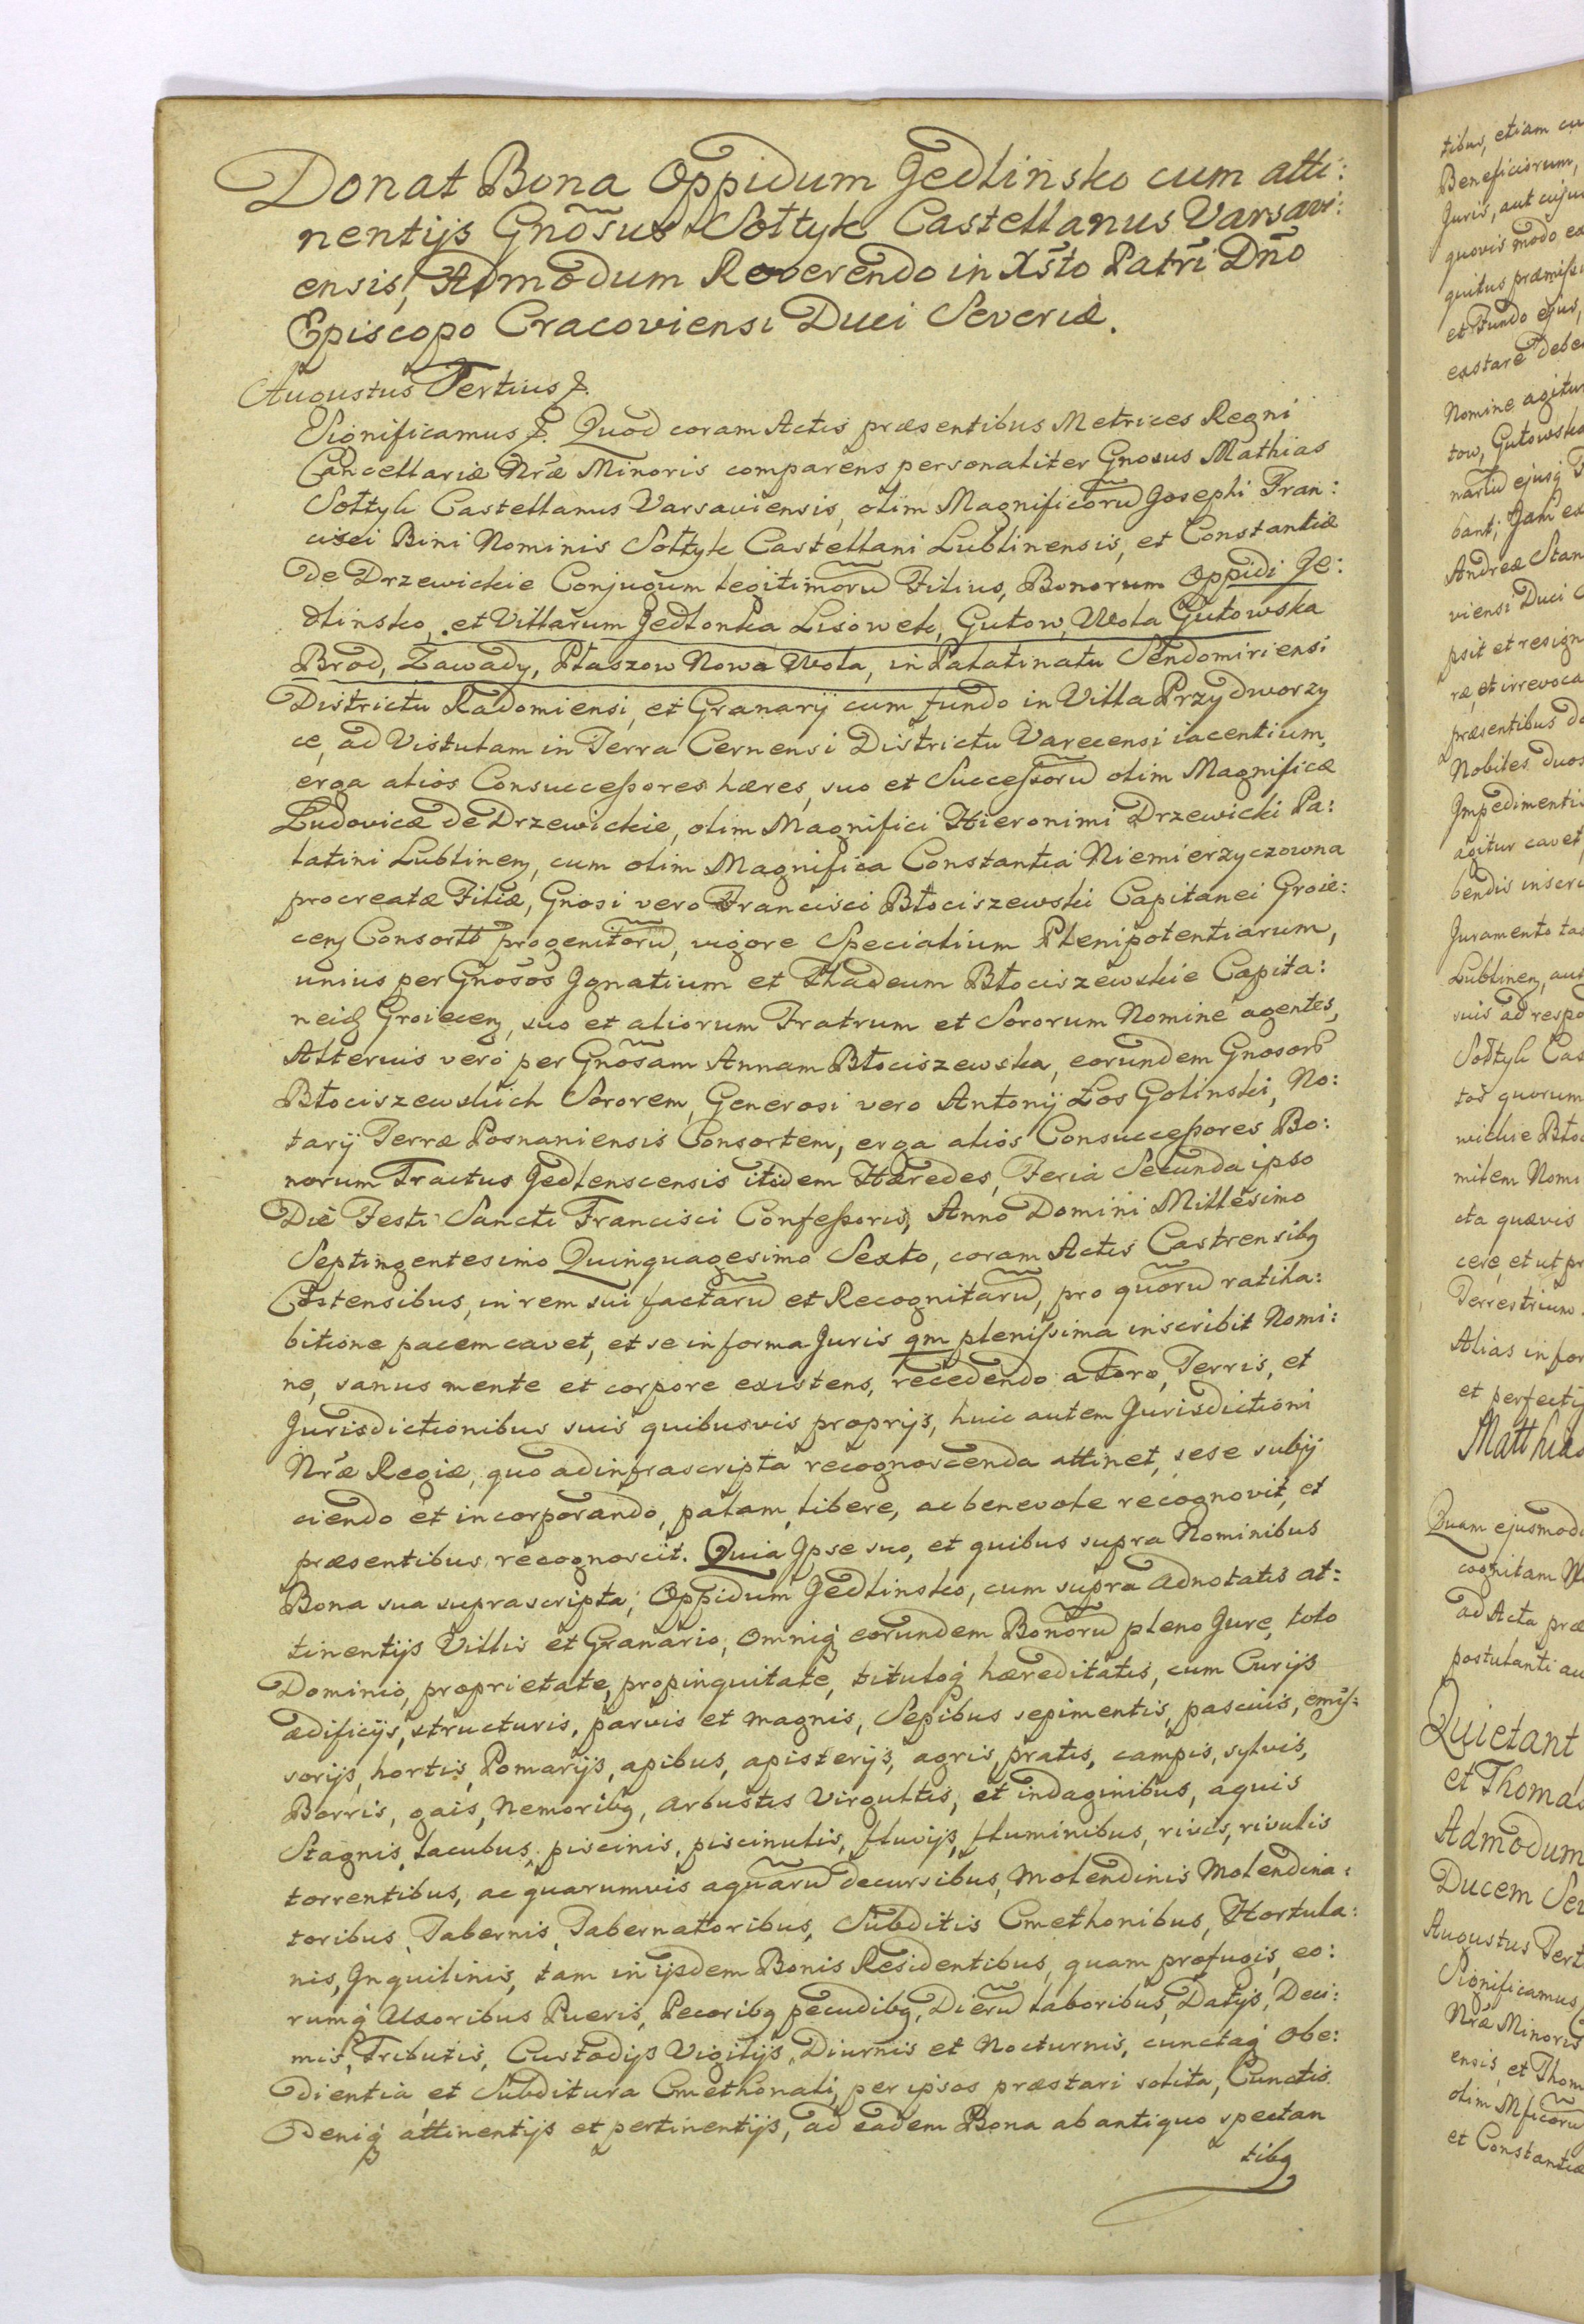 Donat Bona Oppidum Jedlińsko cum atti:
nentijs Gnõsus Sołtyk Castellanus Varsavi:
ensis, Admodum Reverendo in Xsto Patri Dño
Episcopo Cracoviensi Duci Severiæ.
Augustus Tertius &.
Significamus &. Quod coram Actis præsentibus Metrices Regni
Cancellariæ Nræ Minoris comparens personaliter Gnosus Mathias
Sołtyk Castellanus Varsaviensis, olim Magnificorũ Josephi Fran:
cisci Bini Nominis Sołtyk Castellani Lublinensis, et Constantiæ
de Drzewickie Conjugum legitimorũ Filius, Bonorum Oppidi Je:
dlinsko, et Villarum Jedlonka Lisowek, Gutow, Wola Gutowska
Brod, Zawady, Płaszow Nowa Wola, in Palatinatu Sendomiriensi
Districtu Radomiensi, et Granarij cum fundo in Villa Przydworzy
ce, ad Vistulam in Terra Cernensi Districtu Varecensi iacentium,
erga alios Consuccessores hæres, suo et Successorũ olim Magnificæ
Ludovicæ de Drzewickie, olim Magnifici Hieronimi Drzewicki Pa:
latini Lublineñ, cum olim Magnifica Constantia Niemierzyczowna
procreatæ Filiæ, Gnosi vero Francisci Błociszewski Capitanei Groie:
ceñ Consortis progenitorũ, vigore Specialium Plenipotentiarum,
unius per Gnosos Ignatium et Thadeum Błociszewskie Capita:
neid Groieceñ, suo et aliorum Fratrum et Sororum Nomine agentes,
Alterius vero per Gnõsam Annam Błociszewska, eorundem Gnosorũ
Błociszewskich Sororem, Generosi vero Antonij Łos Golinski, No:
tarij Terræ Posnaniensis Consortem, erga alios Consuccessores Bo:
norum Tractus Jedlenscensis itidem Hæredes, Feria Secunda ipso
Die Festi Sancti Francisci Confessoris, Anno Domini Millesimo
Septingentesimo Quinquagesimo Sexto, coram Actis Castrensibq
Costensibus, in rem sui factarũ et Recognitarũ, pro quorũ ratiha:
bitione pacem cavet, et se in forma Juris qm plenissima inscribit Nomi:
ne, sanus mente et corpore existens, recedendo a Foro, Terris, et
Jurisdictionibus suis quibusvis proprijs, huic autem Jurisdictioni
Nræ Regiæ, quo ad infrascripta recognoscenda attinet, sese subij
ciendo et incorporando, palam, libere, ac benevole recognovit, et
præsentibus recognoscit. Quia Ipse suo, et quibus supra Nominibus
Bona sua suprascripta; Oppidum Jedlinsko, cum supra adnotatis at:
tinentijs Villis et Granario, Omniq; eorundem Bonorũ pleno Jure, toto
Dominio, proprietate, propinquitate, tituloq; hæreditatis, cum Curijs
ædificijs, structuris, parvis et magnis, Sepibus sepimentis, pascuis, emis:
sorijs, hortis, Pomarijs, apibus, apisterijs, agris, pratis, campis, sylvis,
Borris, gais, Nemoribq, arbustis Virgultis, et indaginibus, aquis
Stagnis, lacubus, piscinis, piscinulis, fluvijs, fluminibus, rivis, rivulis
torrentibus, ac quarumvis aquarũ decursibus, Molendinis Molendina:
toribus, Tabernis, Tabernatoribus, Subditis Cmethonibus, Hortula:
nis, Inquilinis, tam in ijsdem Bonis Residentibus, quam profugis, eo:
rumq; Uxoribus Pueris, Pecoribq pecudibq, Dierũ laboribus, Datijs, Deci:
mis, Tributis, Custodijs Vigilijs, Diurnis et Nocturnis, cunctaq; Obe:
dientia, et Subditura Cmethonali, per ipsos præstari solita, Cunctis
deniq; attinentijs et pertinentijs, ad eadem Bona ab antiquo spectan
tibq
tibus, etiam cu
Beneficiorum,
Juris, aut cuju
quovis modo ex
quitus præmissi
et Fundo ejus,
exstare debe
Nomine agitur
tow, Gutowska
bant, Jam ex
Andreæ Stan
viensi Duci
psit et resign
ræ, et irrevoca
præsentibus do
Nobiles duos
Impedimentis
agitur cavet,
bendis inscri
Juramento tac
Lublineñ, aut
suis ad respo
Sołtyk Cas
tos quorum
wickie Błoc
mitem Nomi
cta quævis
cere, et ut pr
Terrestrium
Alias in for
et perfecty
Matthias
Quam ejusmodi
cognitam
ad Acta præ
postulanti au
Quietant
et Thomas
Admodum
Ducem Sev
Augustus Tert
Significamus
Nræ Minoris
ensis, et Thom
olim Mficorũ
et Constantiæ